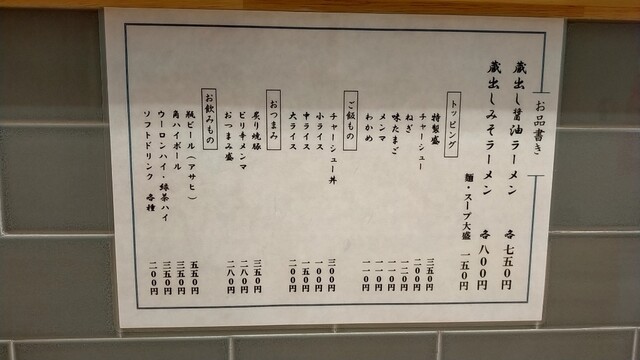 お品書き
蔵出し醤油ラーメン 各 七五０円
蔵出しみそラーメン 各 八００円
麺・スープ大盛 一五０円
トッピング
特製盛 三五０円
チャーシュー 二００円
ねぎ 一二０円
味たまご 一一０円
メンマ 一一０円
わかめ 一一０円
ご飯もの
チャーシュー丼 三００円
小ライス 一００円
中ライス 一五０円
大ライス 二００円
おつまみ
炙り焼豚 三五０円
ピリ辛メンマ 二八０円
おつまみ盛 二八０円
お飲みもの
瓶ビール（アサヒ） 五五０円
角ハイボール 三五０円
ウーロンハイ・緑茶ハイ 三五０円
ソフトドリンク 各種 二００円